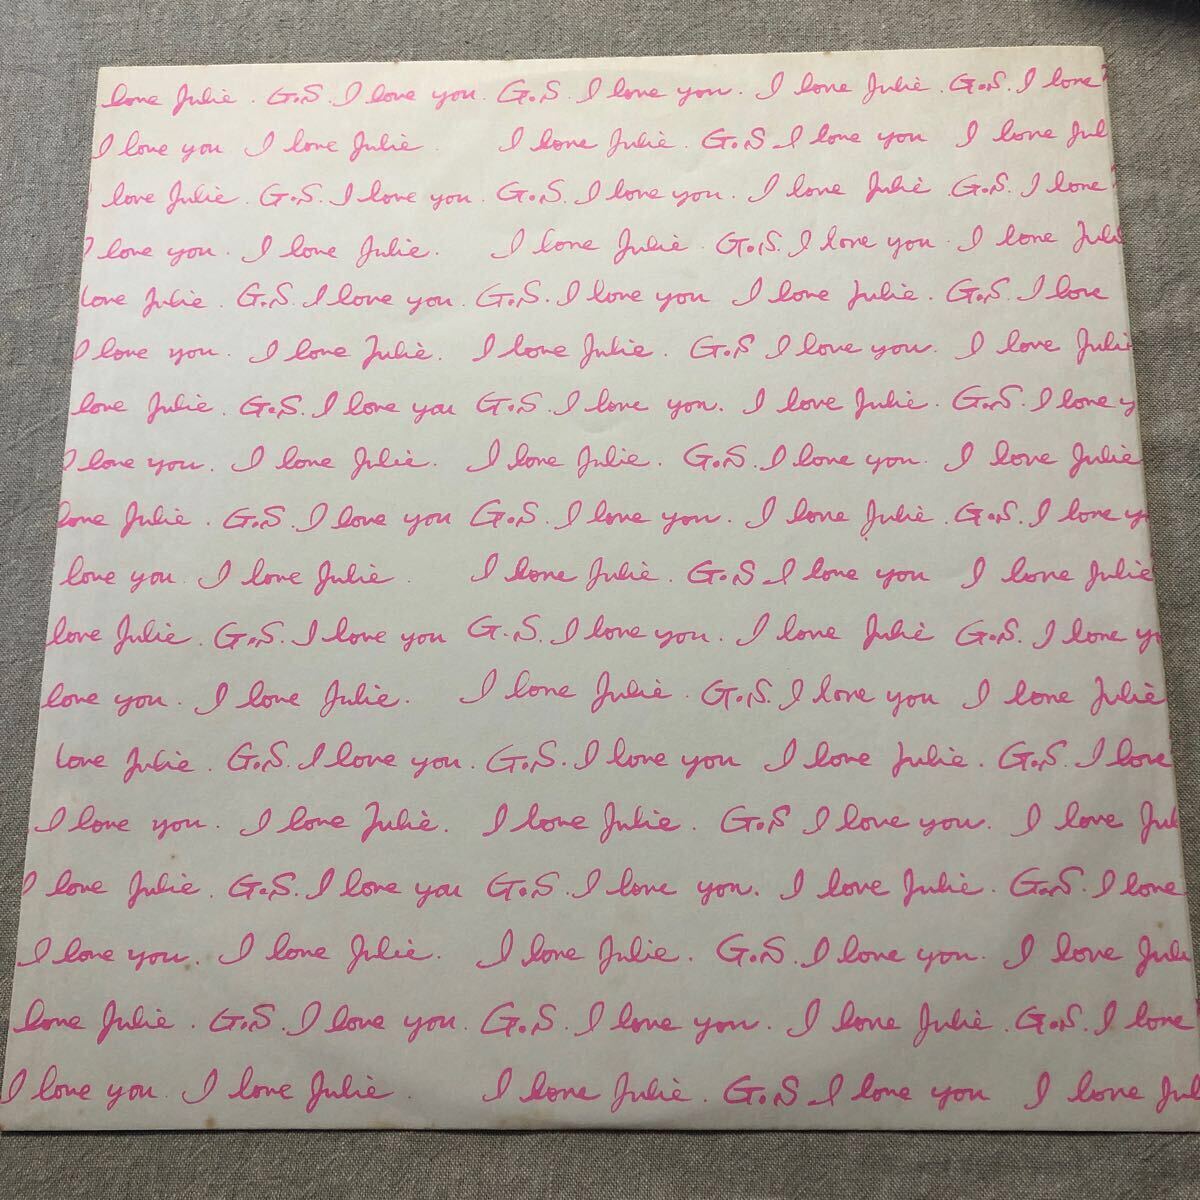 love Julie. G.S. I love you. G.S. I love you. I love Julie. G.S. I love
I love you I love Julie. I love Julie. G.S I love you I love Jul
love Julie. G.S. I love you. G.S. I love you. I love Julie G.S. I love
I love you. I love Julie. I love Julie. G.S. I love you. I love Juli
love Julie. G.S. I love you. G.S. I love you I love Julie. G.S. I love
I love you. I love Julie. I love Julie. G.S I love you. I love Juli
love Julie. G.S. I love you G.S. I love you. I love Julie. G.S. I love y
I love you. I love Julie. I love Julie. G.S. I love you. I love Julie
love Julie. G.S. I love you G.S. I love you. I love Julie. G.S. I love yo
love you. I love Julie. I love Julie. G.S I love you I love Julie
love Julie. G.S. I love you G.S. I love you. I love Julie G.S. I love yo
love you. I love Julie. I love Julie. G.S. I love you I love Julie
love Julie. G.S. I love you. G.S. I love you I love Julie. G.S. I love
I love you. I love Julie. I love Julie. G.S I love you. I love Jul
I love Julie. G.S. I love you G.S. I love you. I love Julie. G.S. I love
I love you. I love Julie. I love Julie. G.S. I love you. I love Julie
love Julie. G.S. I love you. G.S. I love you. I love Julie. G.S. I love
I love you. I love Julie. I love Julie. G.S I love you I love Jul